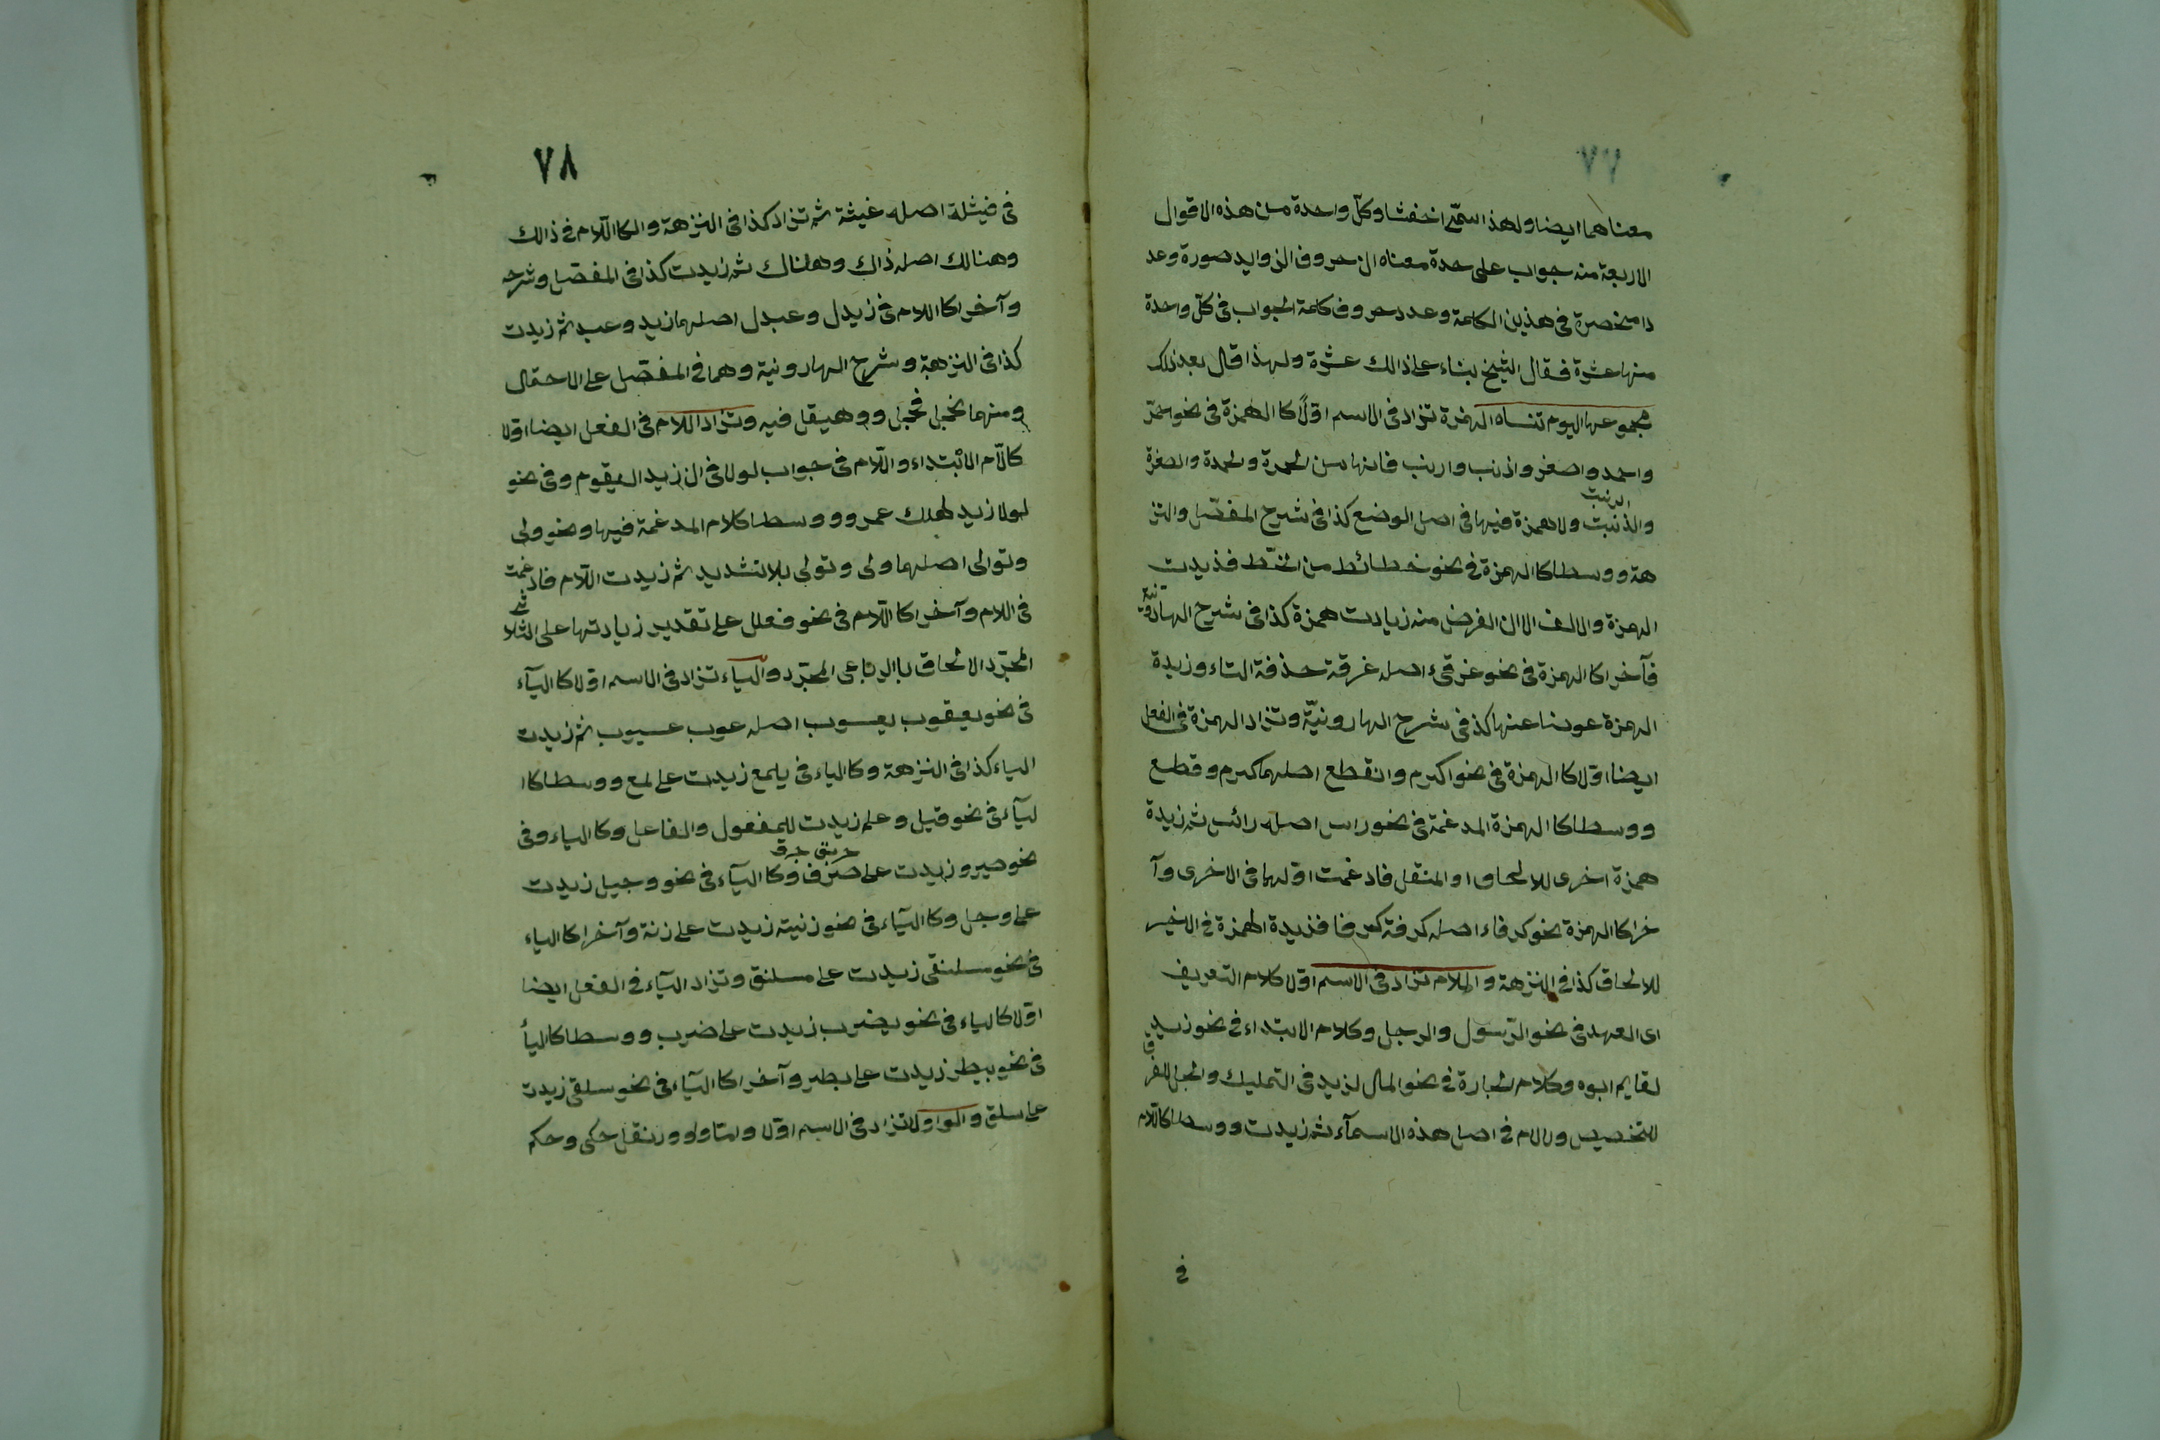 ٧٧
معناهما ايضا ولهذا سمّى اخفشا وكلّ واحدة من هذه الاقوال
الاربعة منه جواب على حدة معناه ان حروف الزوايد صورة وعد
دا منحصرة فى هذين الكلمة وعدد حروف كلمة الجواب فى كلّ واحدة
منها عشرة فقال الشيخ بناء على ذالك عشرة ولهذا قال بعد ذلك
مجموعها اليوم تنساه الهمزة تزاد فى الاسم اوّلا كا الهمزة فى نحو حمّر
واحمد واصغر واذنب وارينب فانها من الحمرة والحمدة والصغرة
والذنبت ولا همزة فيها فى اصل الوضع كذا فى شرح المفصّل والنز
هة ووسطا كا الهمزة فى نحو خطائط من الخطّط فذيدت
الهمزة والالف الا ان الغرض منه زيادت همزة كذا فى شرح الهارونية
فآخرا كا الهمزة فى نحو غرقىء اصله غرقة حذفة التاء وزيدة
الهمزة عوضا عنها كذ فى شرح الهارونيّة وتزاد الهمزة فى الفعل
ايضا اوّلا كا الهمزة فى نحو اكرم وانقطع اصلهما كرم وقطع
ووسطا كا الهمزة المدغمة فى نحو راس اصله رائس ثم زيدة
همزة اخرى للالحاق او المنقل فادغمت اولهما فى الاخرى وآ
خرا كا الهمزة نحو كرفاء اصله كرفة كرفا فذيدة الهمزة فى الاخير
للالحاق كذا فى النزهة واللام تزاد فى الاسم اوّلا كلام التعريف
اى العهد فى نحو الرّسول والرجل وكلام الابتداء فى نحو زيد
لقايم ابوه وكلام الجارة فى نحو المال لزيد فى التمليك والجل للفر
للتخصيص ولا لام فى اصل هذه الاسمآء ثم زيدت ووسطا كاللّام
فى
٧٨
فى فيشلة اصله غيشة ثم تزاد كذا فى النزهة والكا اللّام فى ذالك
وهنالك اصله ذاك وهناك ثم زيدت كذا فى المفصّل وشرحه
وآخرا كا اللام فى زيدل وعبدل اصلهما زيد وعبد ثم زيدت
كذا فى النزهة وشرح الهارونية وهما فى المفصّل على الاحتمال
ومنهما نحجل فحجل ووهيقل فيه وتزاد اللام فى الفعل ايضا اوّلا
كا لّام الابْتداء واللّام فى جواب لولا فى ان زيد اليقوم وفى نحو
لولا زيد لهلك عمرو ووسطا كلام المدغمة فيها ونحو ولى
وتوالى اصلهما ولى وتولى بلا تشديد ثم زيدت اللّام فادغمت
فى اللام وآخرا كا اللّام فى نحو فعلل على تقدير زيادتها على الثلاثى
المجرّد الالحاق باالرباعى المجرّد والياء تزاد فى الاسم اوّلا كا اليآء
فى نحو يعيقوب يعسوب اصله عوب عسوب ثم زيدت
الياء كذا فى النزهة وكا الياء فى يلمع زيدت على لمع ووسطا كا ا
ليآء فى نحو قيل وعلم زيدت للمفعول والفاعل وكا الياء وفى
نحو صيرو زيدت على صرف وكا اليآء فى نحو وجيل زيدت
على وجل وكا اليآء فى نحو زنية زيدت على زنة وآخرا كا الياء
فى نحو سلنقى زيدت على مسلنق وتزاد اليآء فى الفعل ايضا
اوّلا كا الياء فى نحو يضرب زيدت على ضرب ووسطا كا اليأ
فى نحو بيطر زيدت على بطر وآخرا كا اليآء فى نحو سلقى زيدت
على سلق والواو لا تزاد فى الاسم اوّلا وامّا واو ورنقل حكى وحكم